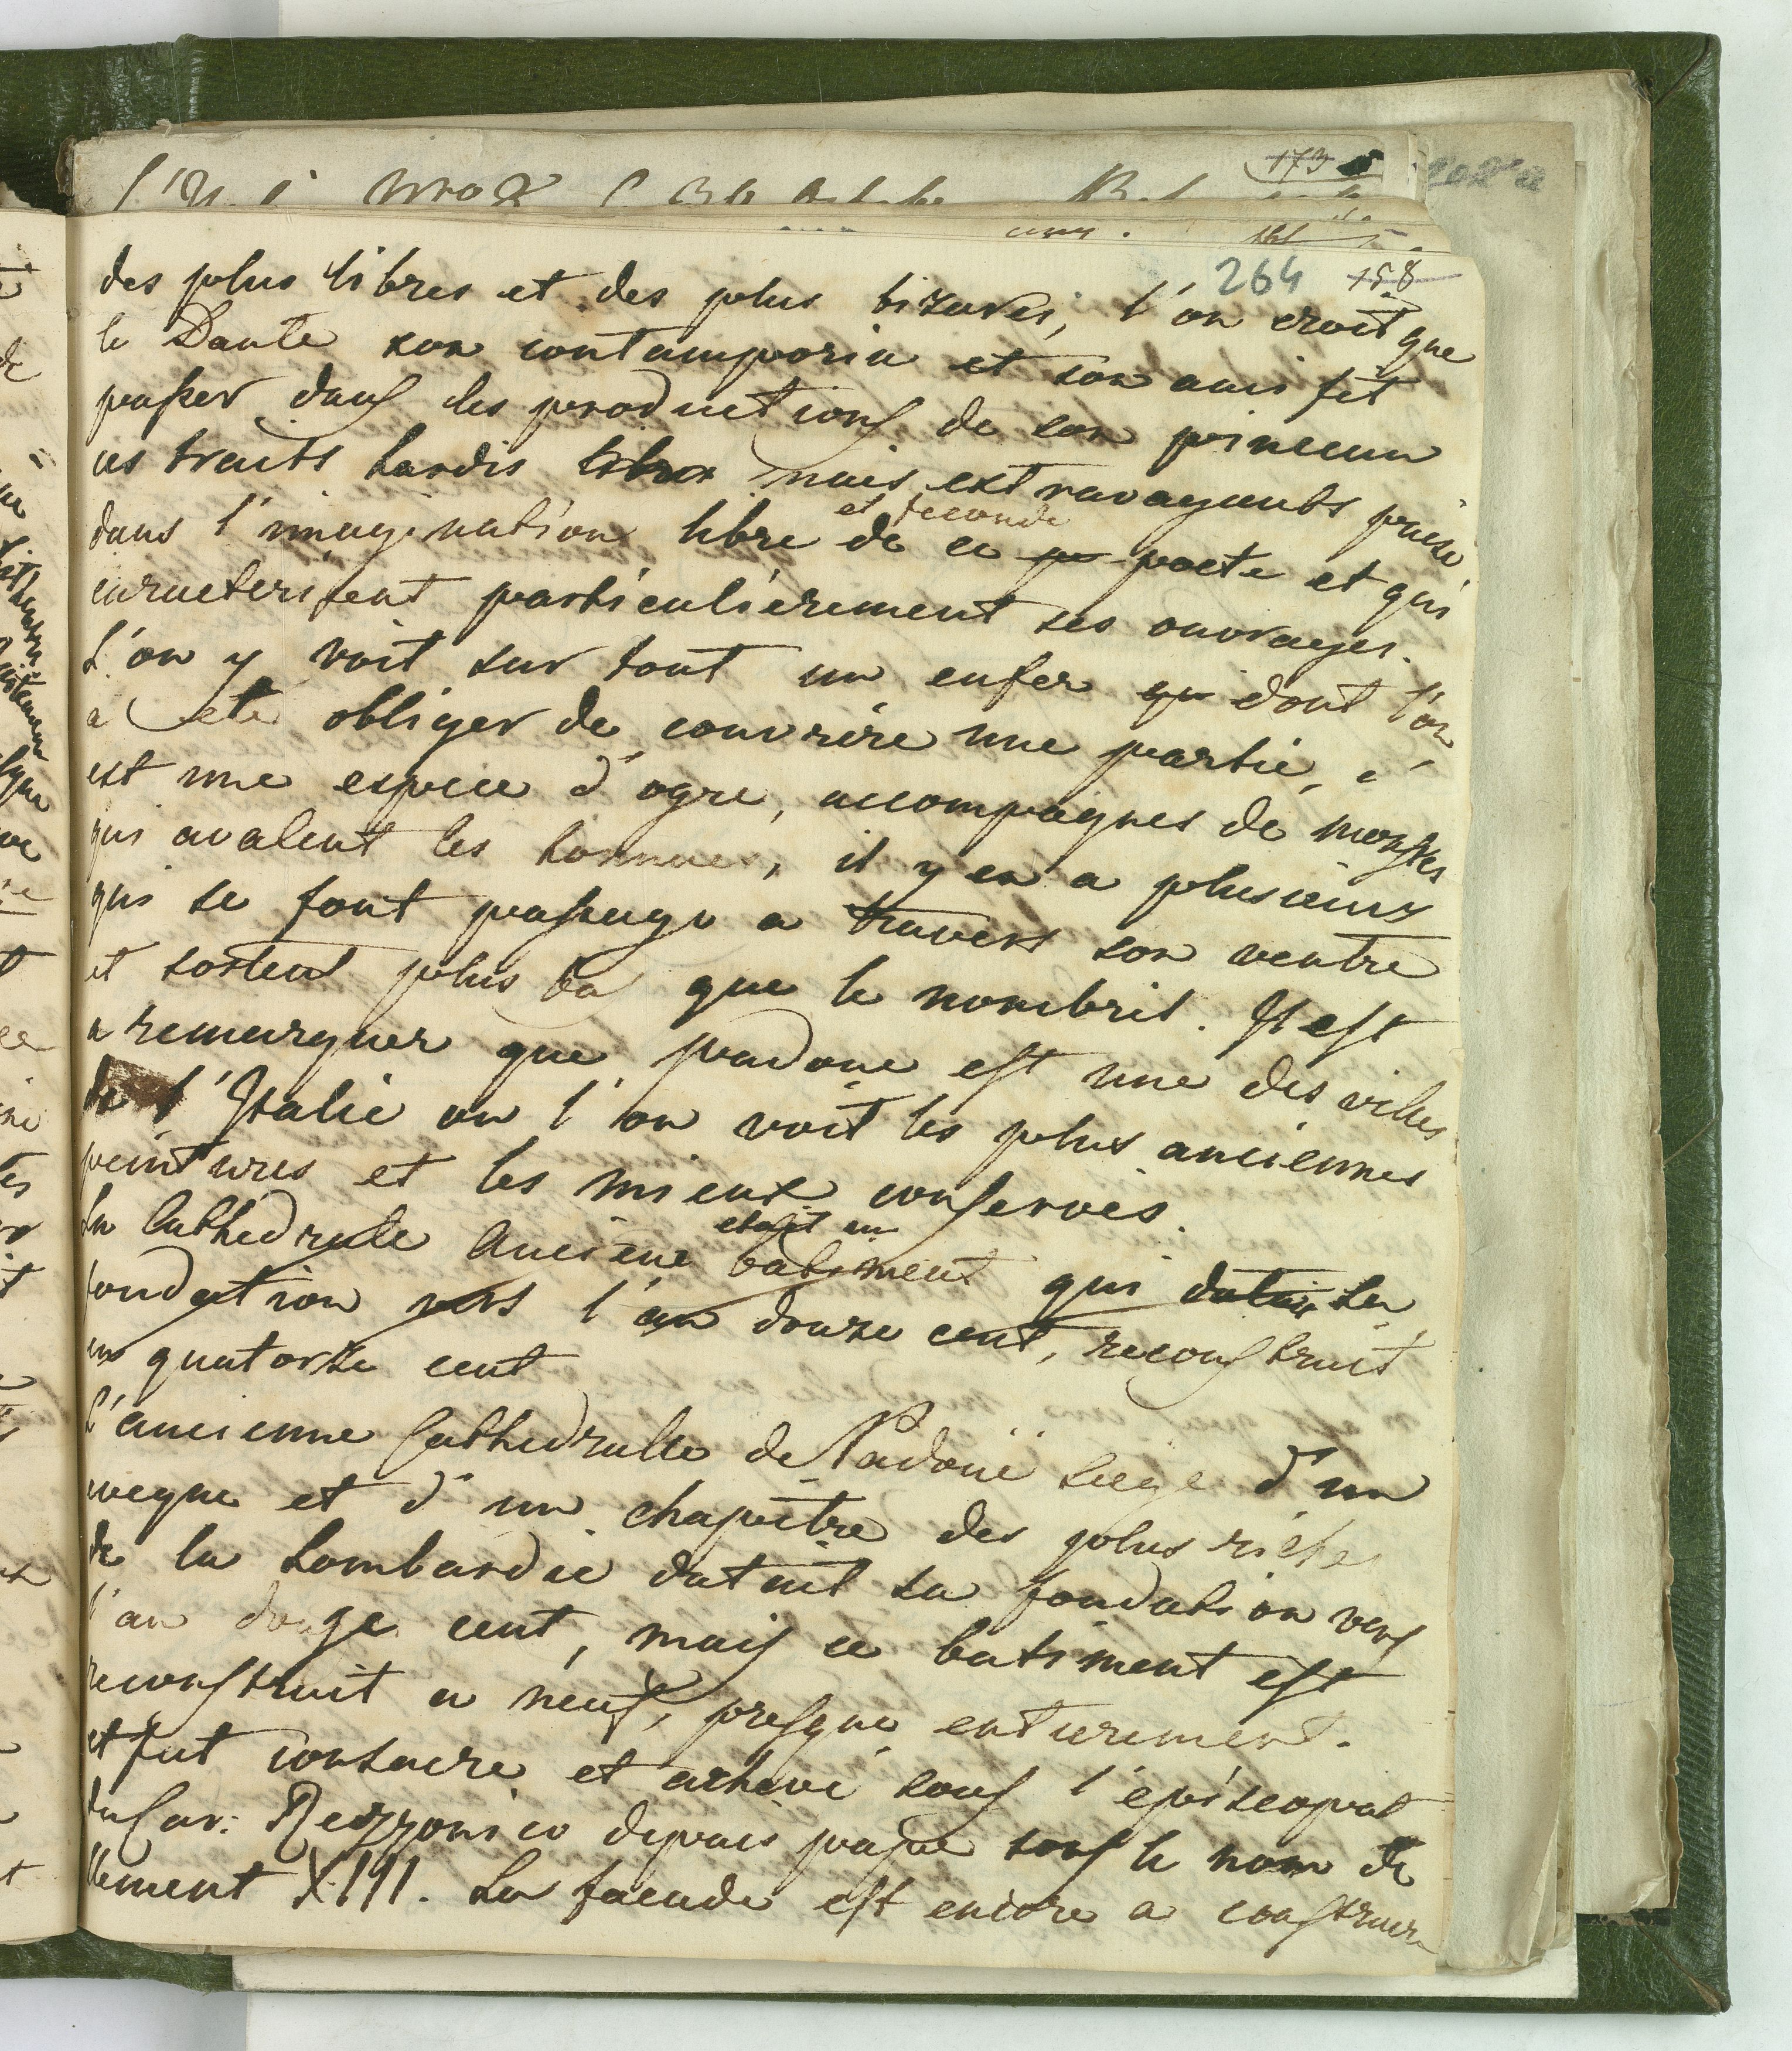 264 158
des plus libres et des plus bizares, l'on croit que
le Dante son contemporin et son ami fit
passer dans les productions de son pinceau
ces traits hardis mais extravagants puisé
et feconde
dans l'imagination libre de ce poete et qui
caracterisent particulièrement ses ouvrages.
L'on y voit sur tout un enfer qu dont l'on
a eté obliger de couvrire une partie, c'
est une espece d'ogre, accompagnes de monstres
qui avalent les hommes, il y en a plusieurs
qui se font passage a travers son ventre
et sortent plus ba que le nombril. Il est
a remarquer que padoue est une des villes
de l'Italie ou l'on voit les plus anciennes
peintures et les mieux conservés.
etoit un
La Cathedrale Anciene batiment qui datais sa
fondation vers l'an douze cent, reconstruit
en quatorze cent
L'ancienne Cathedralle de Padoüe siege d'un
eveque et d'un chapitre des plus riches
de la Lombardie datait sa fondation vers
l'an douze cent, mais ce batiment est
reconstruit a neuf, presque entierement.
et fut consacre et achevé sous l'épiscopat
du Car: Rezzonico depuis pape sous le nom de
Clement XIII. La facade est encore a construire